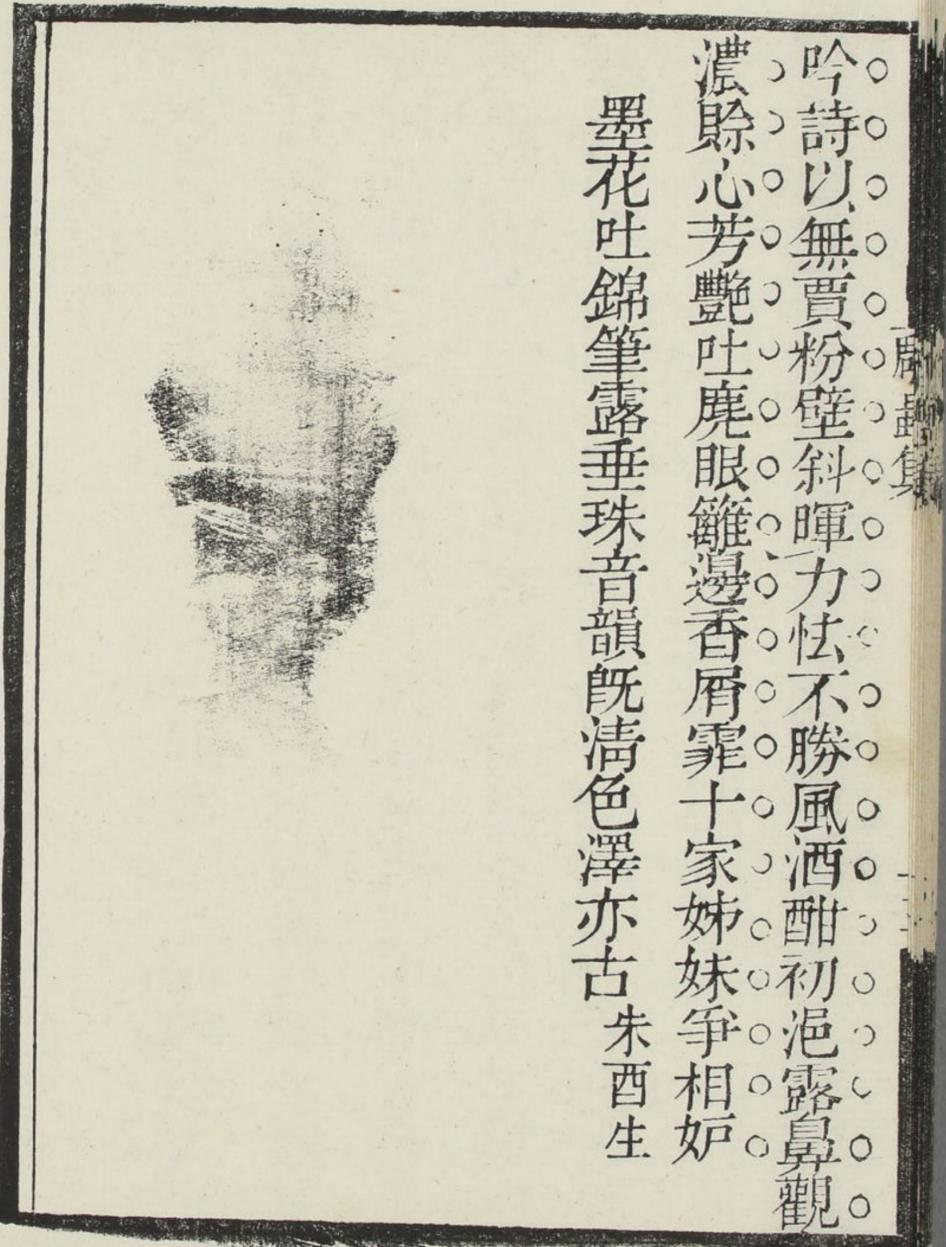 吟詩以無賈粉壁斜暉力怯不勝風酒酣初浥露鼻觀
濃賒心芳豔吐麂眼籬邊香屑霏十家姊妹爭相妒
墨花吐錦筆露垂珠音韻旣淸色澤亦古 朱酉生
集